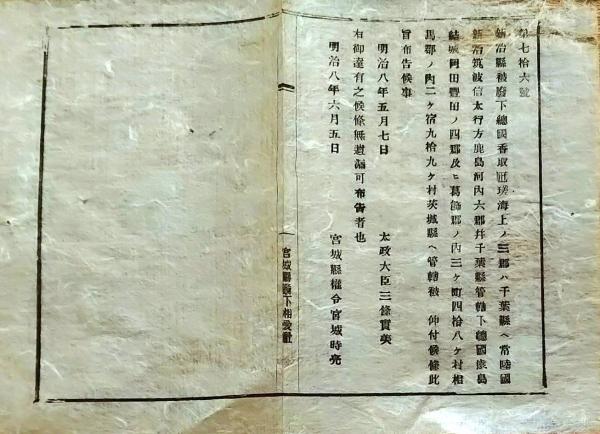 第七拾六號
新治縣被廢下總國香取匝瑳海上ノ三郡ハ千葉縣ヘ常陸國
新治筑波信太行方鹿島河內六郡幷千葉縣管轄下總國猿島
結城岡田豐田ノ四郡及ヒ葛飾郡ノ內三ケ町四拾八ケ村相
馬郡ノ內二ケ宿九拾九ケ村茨城縣ヘ管轄被 仰付候條此
旨布告候事
明治八年五月七日 太政大臣三條實美
右御達有之候條無遺漏可布告者也
明治八年六月五日 宮城縣權令宮城時亮
宮城縣下相愛社